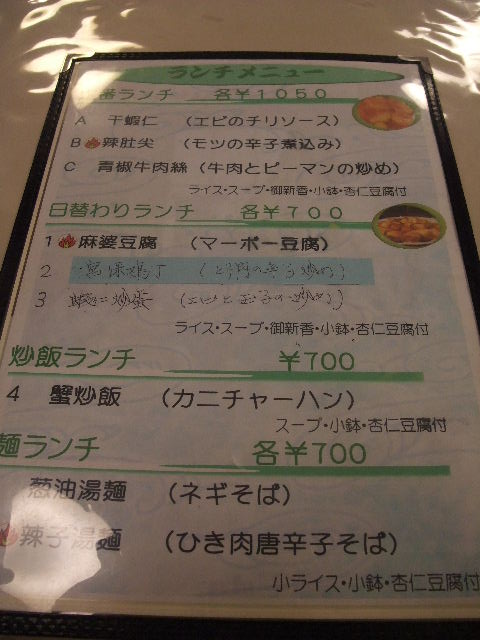 ランチメニュー
番ランチ 各¥1050
A 干蝦仁 (エビのチリソース)
B 辣肚尖 (モツの辛子煮込み)
C 青椒牛肉絲 (牛肉とピーマンの炒め)
ライス・スープ・御新香・小鉢・杏仁豆腐付
日替わりランチ 各¥700
1 麻婆豆腐 (マーボー豆腐)
2
3 炒蛋
ライス・スープ・御新香・小鉢・杏仁豆腐付
炒飯ランチ ¥700
4 蟹炒飯 (カニチャーハン)
スープ・小鉢・杏仁豆腐付
麺ランチ 各¥700
葱油湯麺 (ネギそば)
辣子湯麺 (ひき肉唐辛子そば)
小ライス・小鉢・杏仁豆腐付